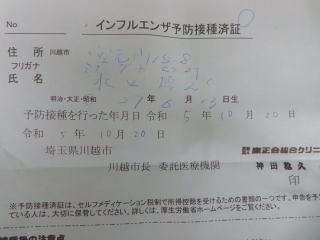 No インフルエンザ予防接種済証
住所 川越市
フリガナ
氏名
明治・大正・昭和 29年6月13日生
予防接種を行った年月日 令和 5年10月20日
令和 5年10月20日
埼玉県川越市
川越市長 委託医療機関
印
※予防接種済証は、セルフメディケーション税制で所得控除を受けるための書類の一つです。申告を予
ている人は、大切に保管してください。詳しくは、厚生労働省ホームページをご覧ください。
接種後の注意点